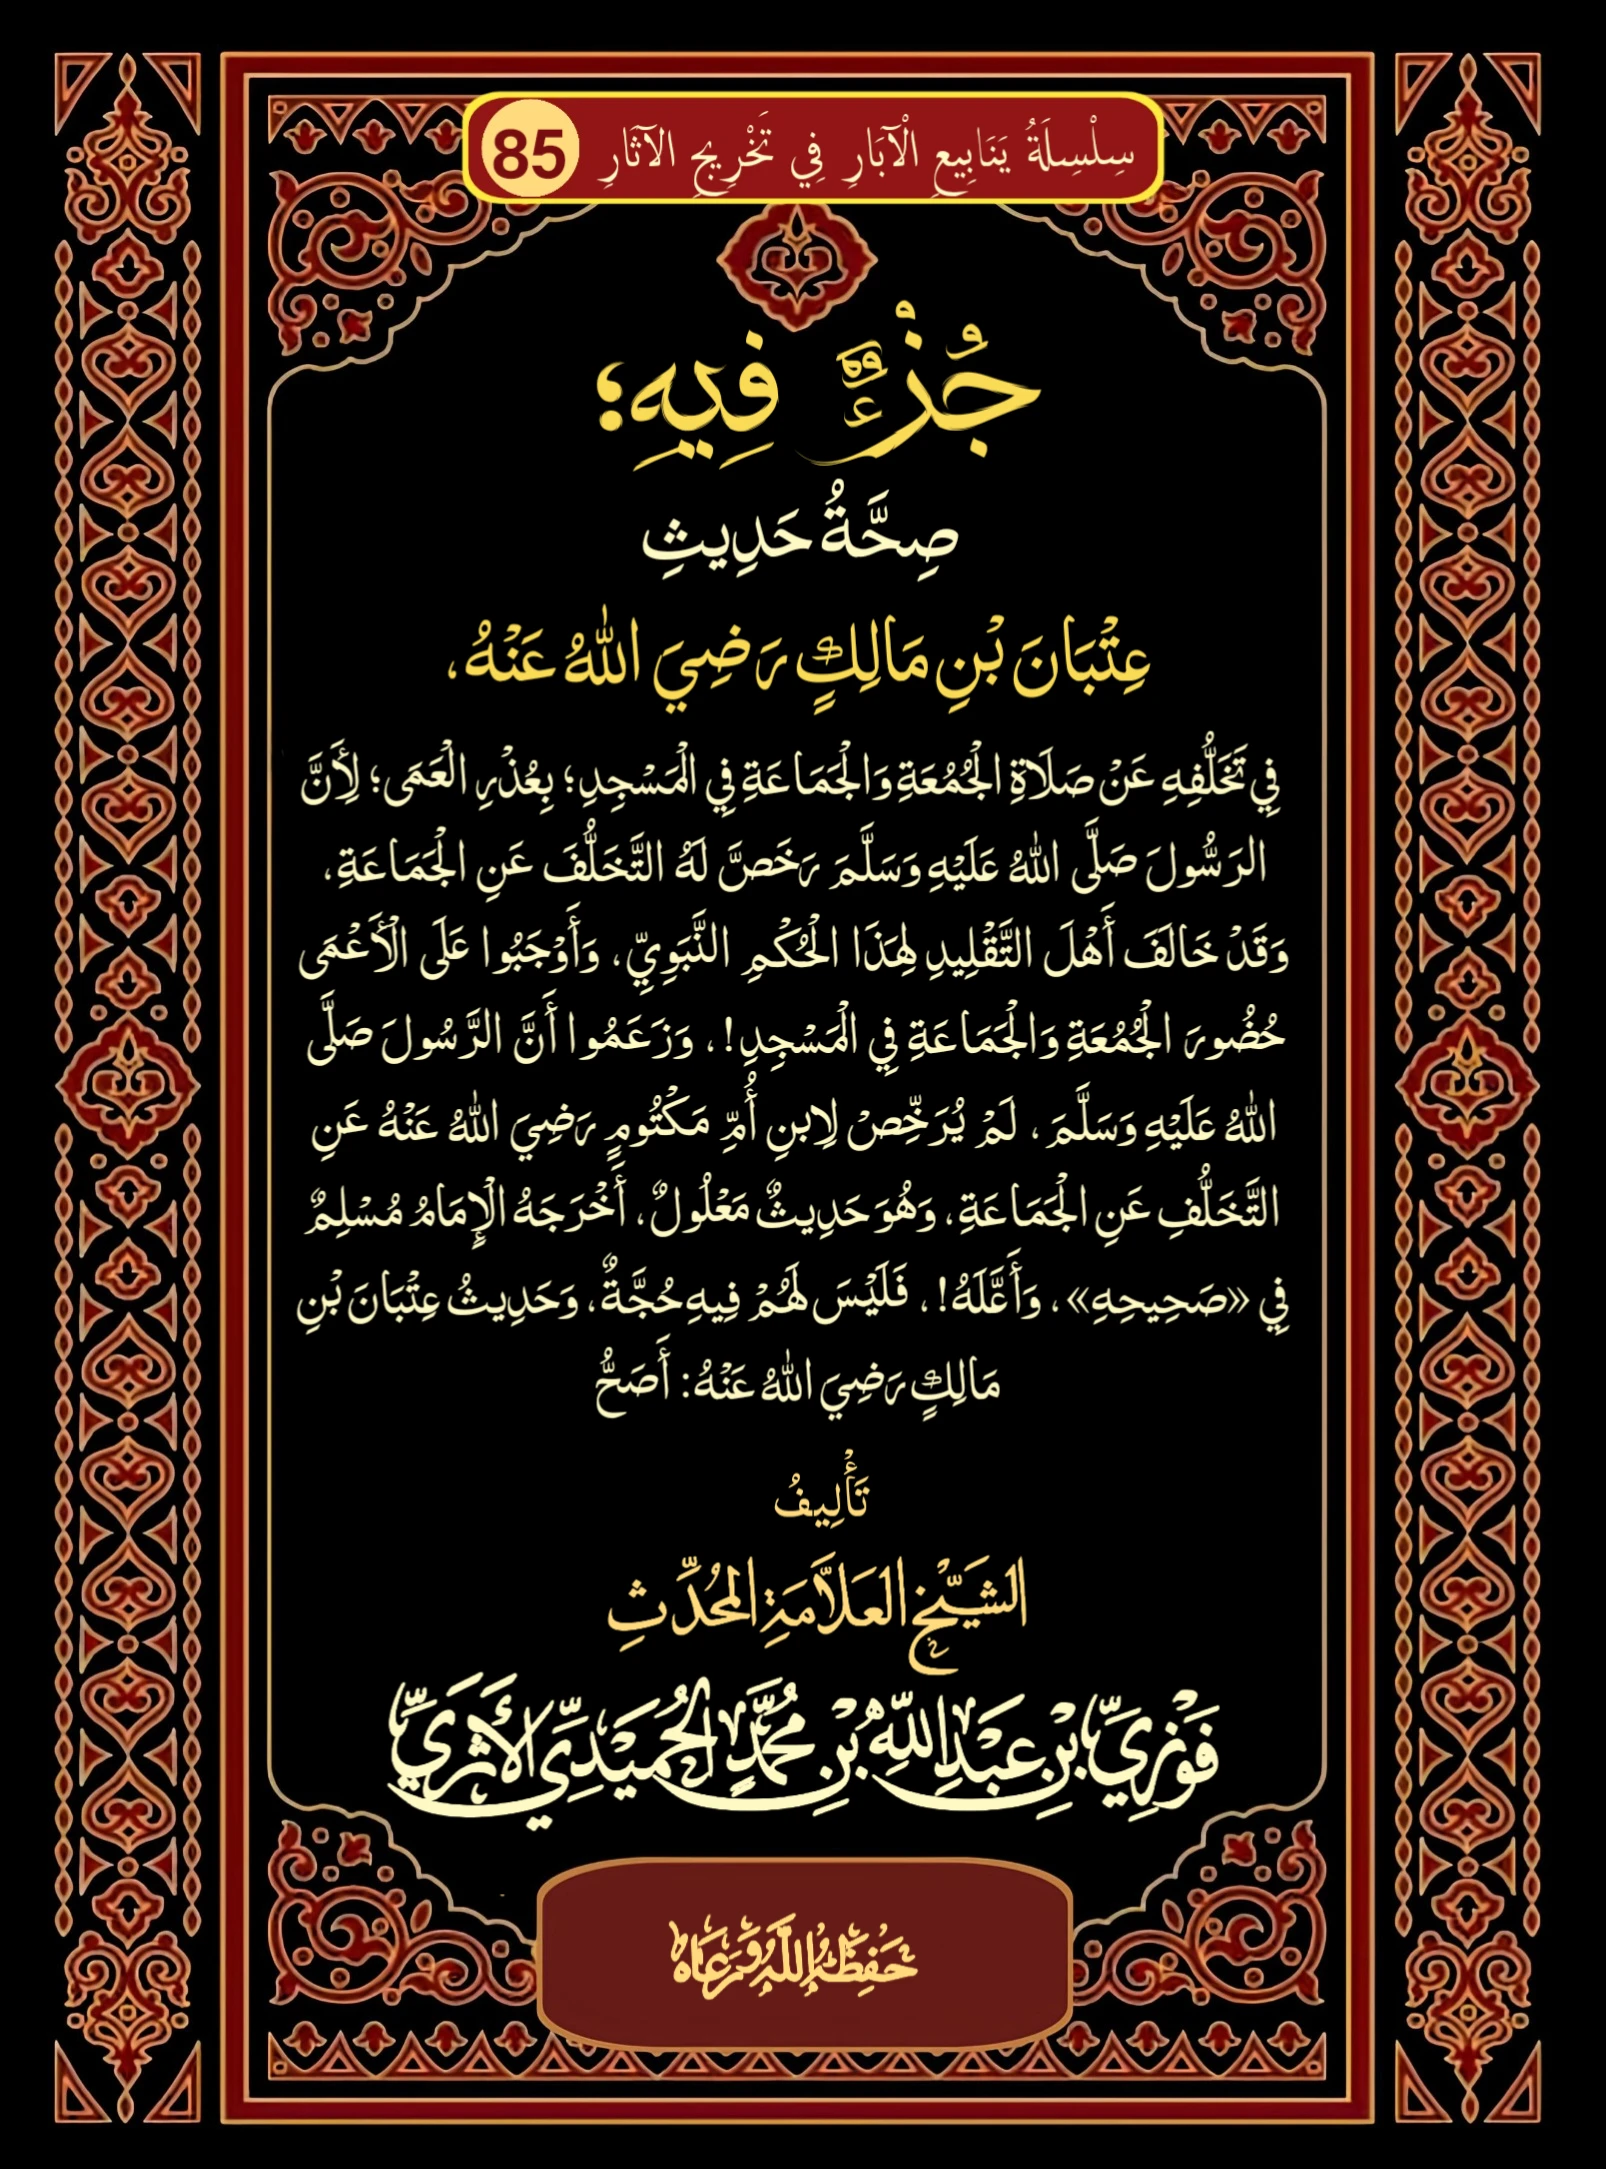 سِلْسِلَةُ يَنَابِيعِ الْآبَارِ فِي تَخْرِيجِ الآثَارِ 85
جُزْءٌ فِيهِ؛
صِحَّةُ حَدِيثِ
عِتْبَانَ بْنِ مَالِكٍ رَضِيَ اللهُ عَنْهُ،
فِي تَخَلُّفِهِ عَنْ صَلَاةِ الْجُمُعَةِ وَالْجَمَاعَةِ فِي الْمَسْجِدِ؛ بِعُذْرِ الْعَمَى؛ لِأَنَّ
الرَسُولَ صَلَّى اللهُ عَلَيْهِ وَسَلَّمَ رَخَصَّ لَهُ التَّخَلُّفَ عَنِ الْجَمَاعَةِ،
وَقَدْ خَالَفَ أَهْلَ التَّقْلِيدِ لِهَذَا الْحُكْمِ النَّبَوِيِّ، وَأَوْجَبُوا عَلَى الْأَعْمَى
حُضُورَ الْجُمُعَةِ وَالْجَمَاعَةِ فِي الْمَسْجِدِ!، وَزَعَمُوا أَنَّ الرَّسُولَ صَلَّى
اللهُ عَلَيْهِ وَسَلَّمَ، لَمْ يُرَخِّصْ لِابنِ أُمِّ مَكْتُومٍ رَضِيَ اللهُ عَنْهُ عَنِ
التَّخَلُّفِ عَنِ الْجَمَاعَةِ، وَهُوَ حَدِيثٌ مَعْلُولٌ، أَخْرَجَهُ الْإِمَامُ مُسْلِمٌ
فِي «صَحِيحِهِ»، وَأَعَّلَهُ!، فَلَيْسَ لَهُمْ فِيهِ حُجَّةٌ، وَحَدِيثُ عِتْبَانَ بْنِ
مَالِكٍ رَضِيَ اللهُ عَنْهُ: أَصَحُّ
تَأْلِيفُ
الشَّيْخِ العَلَّامَةِ المُحَدِّثِ
فَوْزِيِّ بْنِ عَبْدِ اللَّهِ بْنِ مُحَمَّدٍ الحُمَيْدِيِّ الأَثَرِيِّ
حَفِظَهُ اللَّهُ وَرَعَاهُ